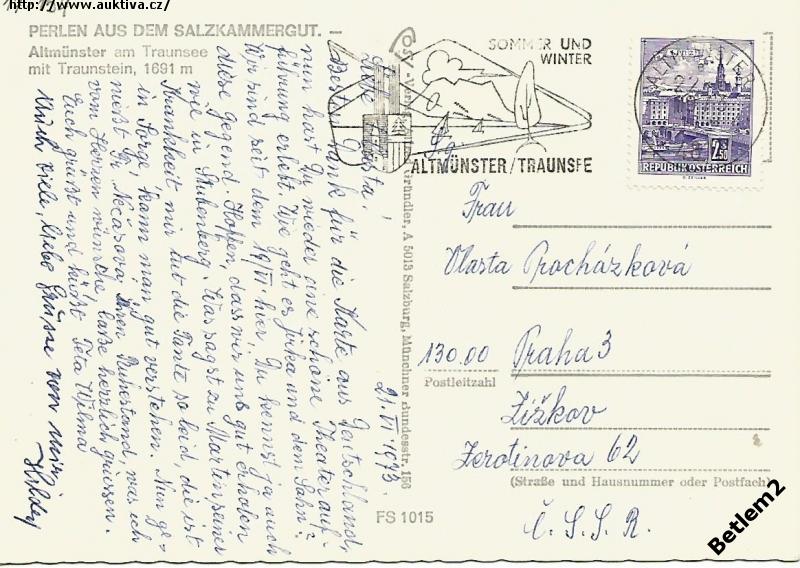 http://www.auktiva.cz/
PERLEN AUS DEM SALZKAMMERGUT. –
Altmünster am Traunsee
mit Traunstein, 1691 m
SOMMER UND
WINTER
ALTMÜNSTER/TRAUNSEE
ALTMÜNSTER
2.50
REPUBLIK ÖSTERREICH
21.VI.1973.
Liebe Vlasta!
Besten Dank für die Karte aus Deutschland,
nun hast Du wieder eine schöne Theaterauf-
führung erlebt. Wie geht es Jirka und dem Sohn?
Wir sind seit dem 19/VI hier, Du kennst ja auch
diese Gegend. Hoffen, dass wir uns gut erholen
wie in Stubenberg. Was sagst zu Martin seiner
Krankheit, mir tut die Tante so leid, die ist
in Sorge, kann man gut verstehen. Nun ge-
nießt Fr. Nečasová ihren Ruhestand, was ich
von Herzen wünsche, laße herzlich grüssen.
Euch grüsst und küßt Teta Wilma
Auch viele, liebe Grüsse von
Gründler, A 5013 Salzburg, Münchner Bundesstr. 156
FS 1015
Frau
Vlasta Procházková
130.00 Praha 3
Postleitzahl
Žižkov
Žerotinova 62
(Straße und Hausnummer oder Postfach)
Č.S.S.R.
Betlem2